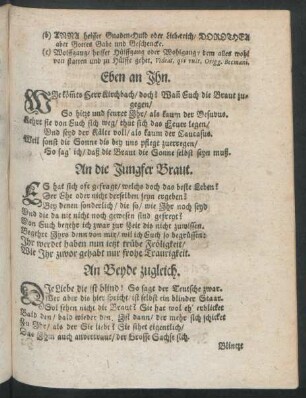 (b) ANNA heisset Gnaden-Huld oder Liebreich/ DOROTHEA
aber Gottes Gabe und Geschencke.
(c) Wolffgang/ heisset Hülffgang oder Wohlgang/ dem alles wohl
von statten und zu Hülffe gehet,
Eben an Ihn.
Wie könte Herr Kirchbach/ doch? Wañ Euch die Braut zu-
gegen/
So hitzt und feuret Ihr/ als kaum der Vesuvus.
Kehrt sie vor Euch sich weg/ thut sich das Feuer legen/
Und seyd der Kälte voll/ als kaum der Caucasus.
Weil sonst die Sonne dis bey uns pflegt zuerregen/
So sag' ich/ daß die Braut die Sonne selbst seyn muß.
An die Jungfer Braut.
ES hat sich ofs gefragt/ welchs doch das beste Leben?
Der Ehe oder nicht derselben seyn ergeben?
Bey denen sonderlich/ die so/ wie Ihr noch seyd
Und die da mit nicht noch gewesen sind gefreyt?
Von Euch begehr ich zwar zur Zeit dis nicht zuwissen.
Begehrt Ihrs denn von mir/ wil ich Euch so begrüssen:
Ihr werdet haben nun jetzt trübe Fröligkeit/
Wie Ihr zuvor gehabt nur frohe Traurigkeit.
An Beyde zugleich.
DIe Liebe die ist blind! So sagt der Teutsche zwar.
Wer aber dis hier spricht/ ist selbst ein blinder Staar.
Sol sehen nicht die Braut? Sie hat wol eh' erblicket
Bald den/ bald wieder den, Biß dann/ der mehr sich schicket
Zu Ihr/ als der Sie liebt? Sie sihet eigentlich/
Das Ihm auch anvertraut/ der Grosse Sachse sich.
Blintzt